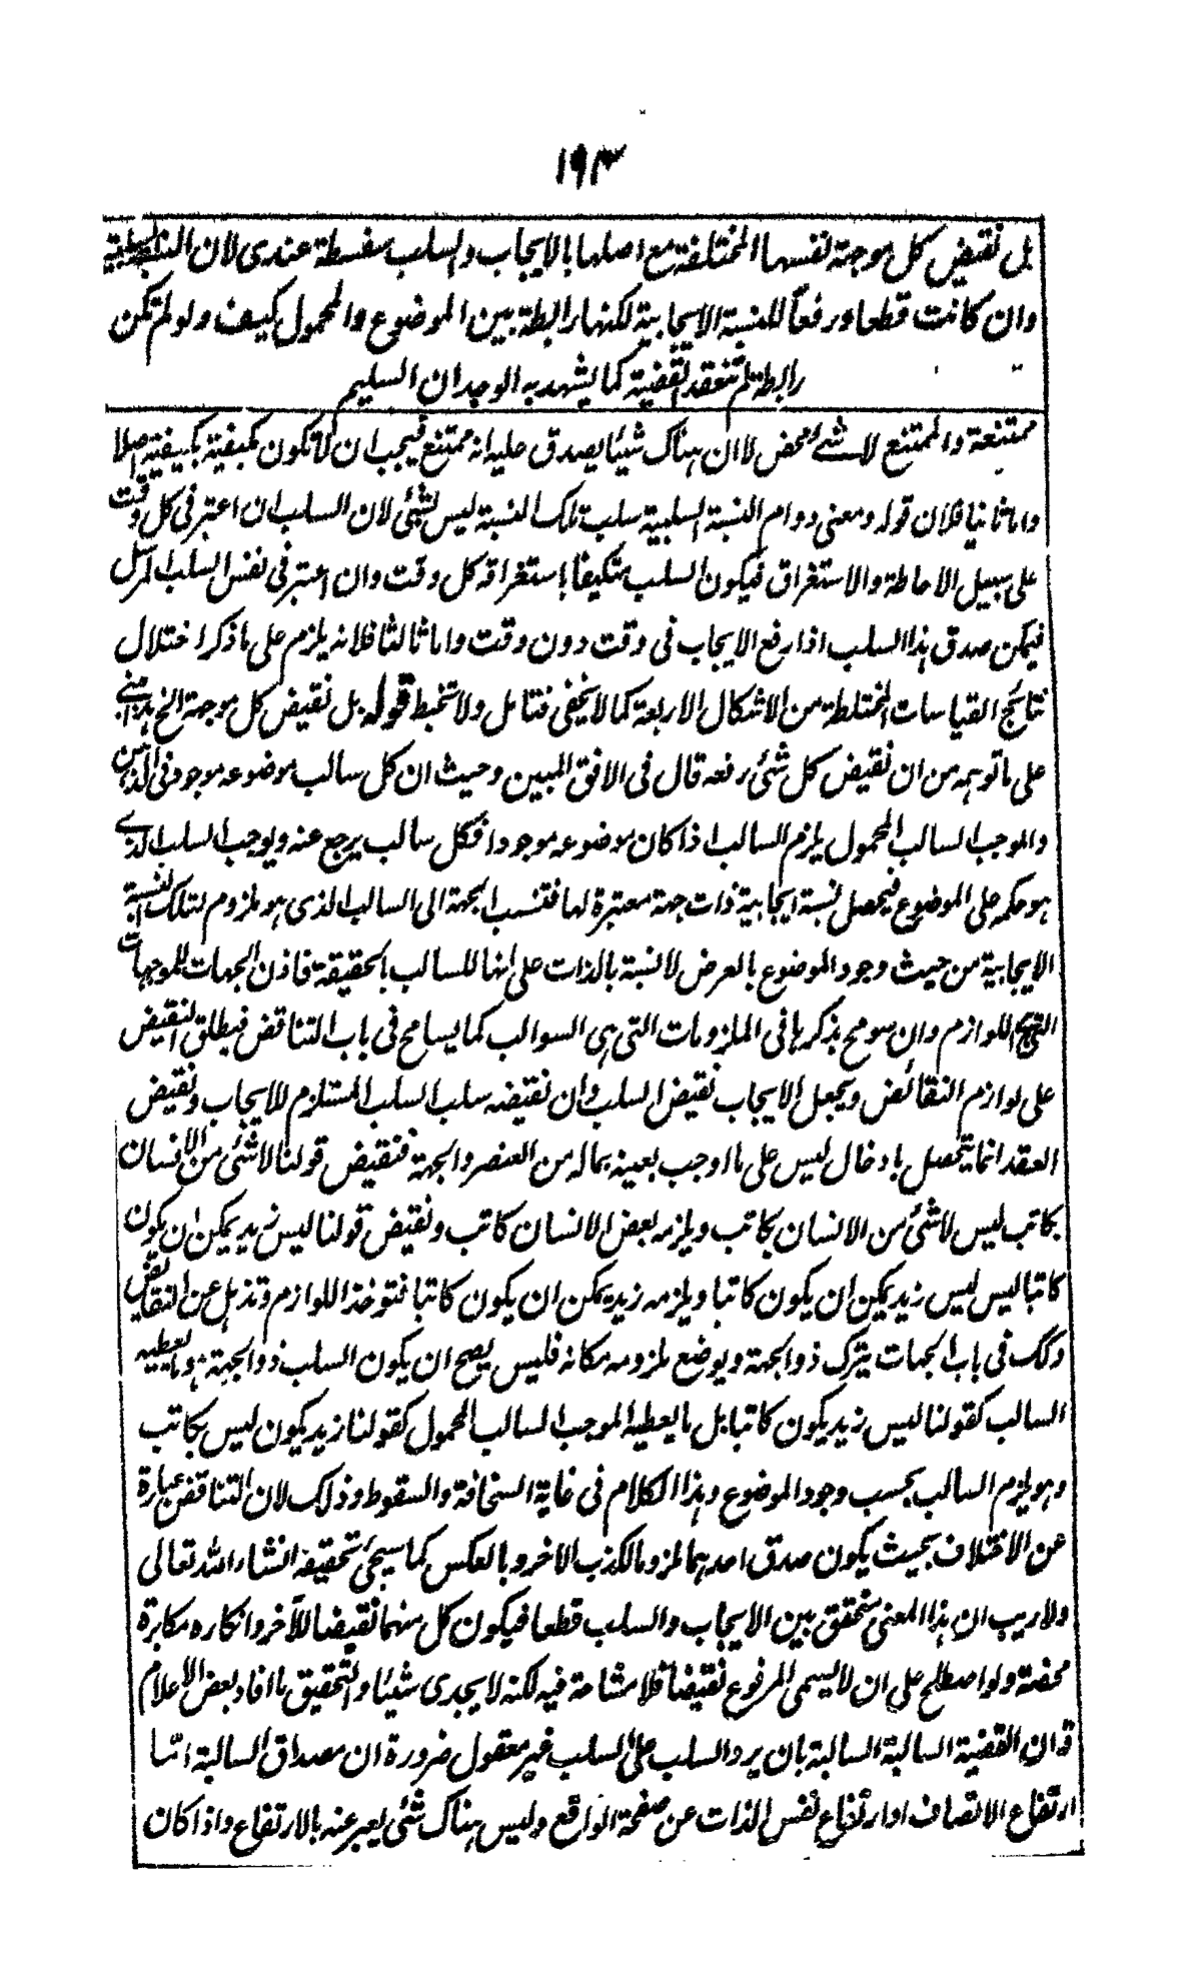 ١٩٣
بل نقيض كل موجهة نفسها المختلفة مع اصلها بالايجاب والسلب سفسطة عندى لان النسبة السلبية
وان كانت قطعا ورفعاً للنسبة الايجابية لكنها رابطة بين الموضوع والمحمول كيف ولو لم تكن
رابطة لم تنعقد القضية كما يشهد به الوجدان السليم
ممتنعة والممتنع لا شئ محض لا ان هناك شيئا يصدق عليه انه ممتنع فيجب ان لا تكون مكيفية بكيفية اصلا
واما ثانيا فلان قوله ومعنى دوام النسبة السلبية سلب تلك النسبة ليس بشئ لان السلب ان اعتبر فى كل وقت
على سبيل الاحاطة والاستغراق فيكون السلب متكيفا باستغراقه كل وقت وان اعتبر فى نفس السلب المرسل
فيمكن صدق هذا السلب اذا رفع الايجاب فى وقت دون وقت واما ثالثا فلانه يلزم على ما ذكر اختلال
نتائج القياسات المختلطة من الاشكال الاربعة كما لا يخفى فتامل ولا تخبط قوله بل نقيض كل موجهة الخ هذا مبنى
على ما توهمه من ان نقيض كل شئ رفعه قال فى الافق المبين وحيث ان كل سالب موضوعه موجود فى الذهن
والموجب السالب المحمول يلزم السالب اذا كان موضوعه موجودا فكل سالب يرجع عنه ويوجب السلب الذى
هو حكمه على الموضوع فيحصل نسبة ايجابية ذات جهة معتبرة لها فتنسب الجهة الى السالب الذى هو ملزوم لتلك النسبة
الايجابية من حيث وجود الموضوع بالعرض لا نسبة بالذات على انها للسالب بالحقيقة فاذن الجهات للموجبات
التى هى اللوازم وان سومح بذكرها فى الملزومات التى هى السوالب كما يسامح فى باب التناقض فيطلق النقيض
على لوازم النقائض ويجعل الايجاب نقيض السلب وان نقيضه سلب السلب المستلزم للايجاب ونقيض
العقد انما يتحصل بادخال ليس على ما اوجب بعينه بماله من العنصر والجهة فنقيض قولنا لا شئ من الانسان
بكاتب ليس لا شئ من الانسان بكاتب ويلزمه بعض الانسان كاتب ونقيض قولنا ليس زيد يمكن ان يكون
كاتبا ليس ليس زيد يمكن ان يكون كاتبا ويلزمه زيد يمكن ان يكون كاتبا فتوخذ اللوازم وتذهل عن النقائض
وكك فى باب الجهات يترك ذو الجهة ويوضع ملزومه مكانه فليس يصح ان يكون السلب ذو الجهة هو ما يعطيه
السالب كقولنا ليس زيد يكون كاتبا بل ما يعطيه الموجب السالب المحمول كقولنا زيد يكون ليس بكاتب
وهو يلزم السالب بحسب وجود الموضوع وهذا الكلام فى غاية السخافة والسقوط وذلك لان التناقض عبارة
عن الاختلاف بحيث يكون صدق احدهما ملزوما لكذب الاخر وبالعكس كما سيجئ تحقيقه انشاء الله تعالى
ولا ريب ان هذا المعنى متحقق بين الايجاب والسلب قطعا فيكون كل منهما نقيضا للآخر وانكاره مكابرة
محضة ولو اصطلح على ان لا يسمى المرفوع نقيضا فلا مشاحة فيه لكنه لا يجدى شيئا والتحقيق ما افاد بعض الاعلام
قد ان القضية السالبة السالبة بان يرد السلب على السلب غير معقول ضرورة ان مصداق السالبة انما
ارتفاع الاتصاف او ارتفاع نفس الذات عن صفحة الواقع وليس هناك شئ يعبر عنه بالارتفاع واذا كان